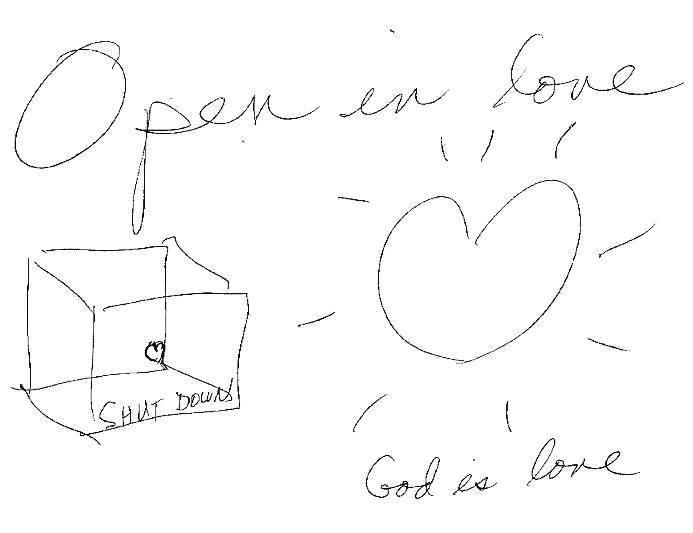 Open in love
SHUT DOWN
God is love